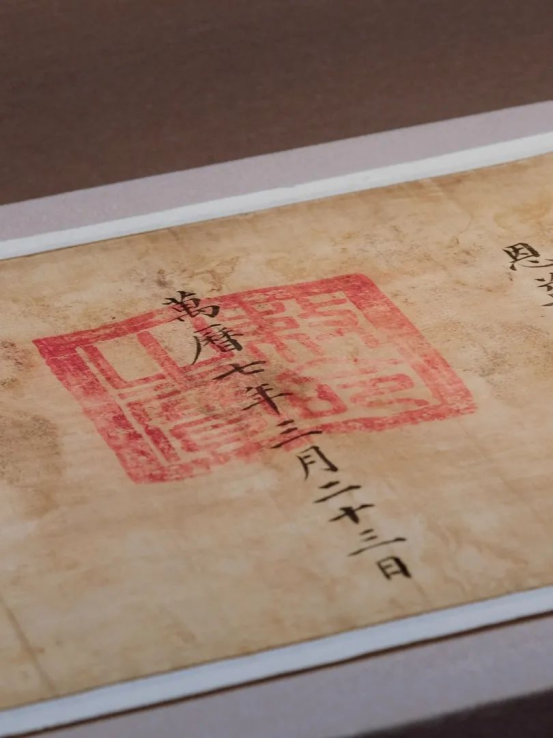 恩
萬曆七年三月二十三日